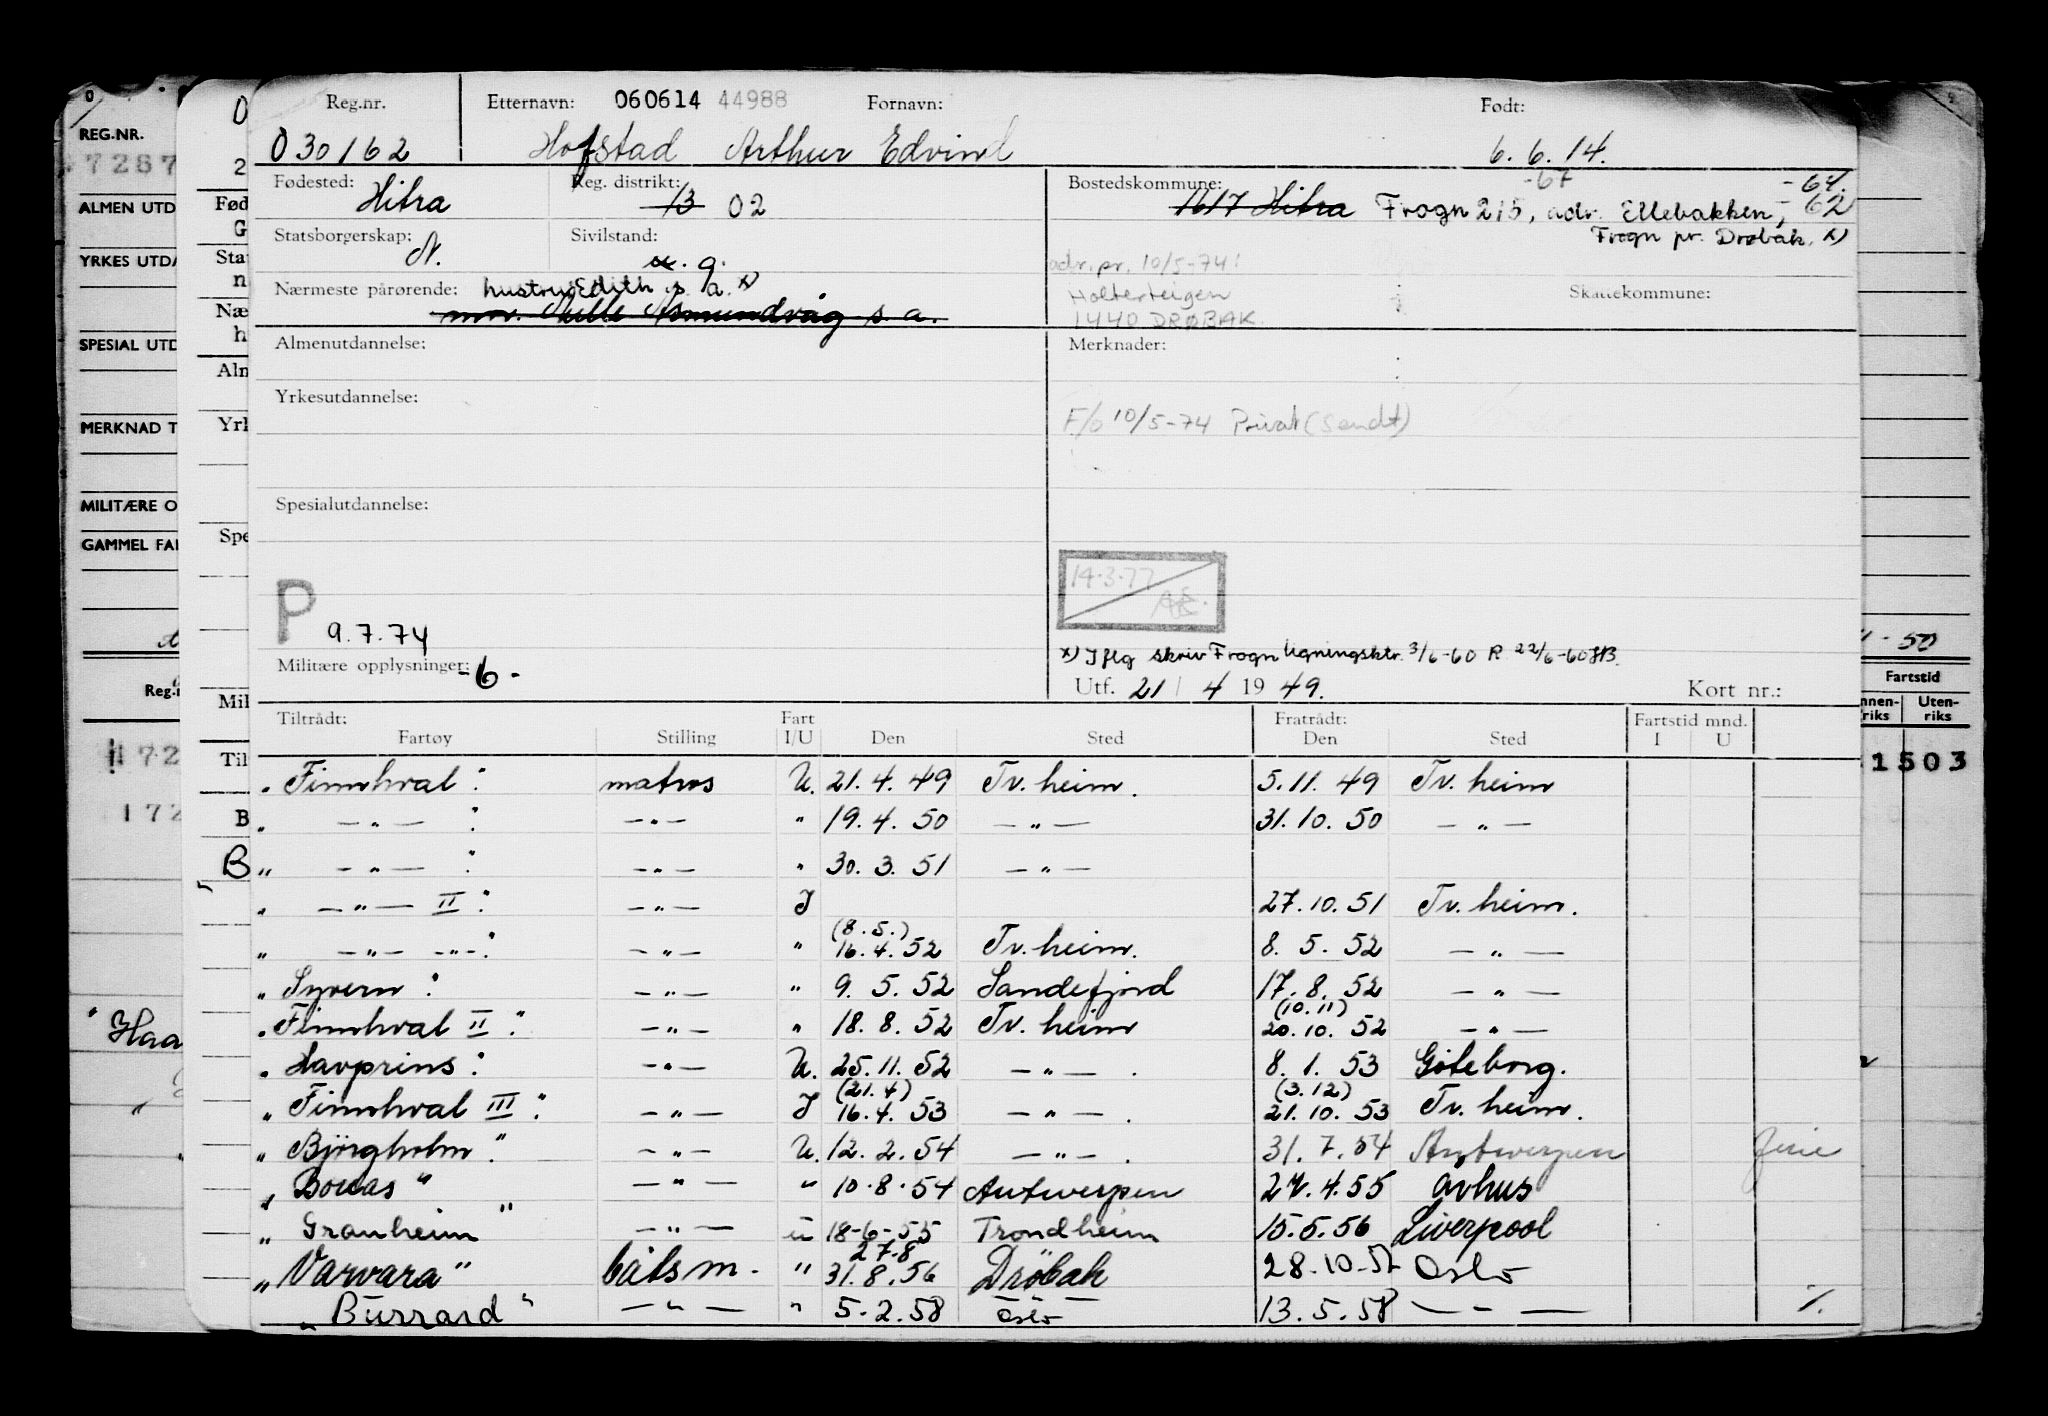 Reg.nr. Etternavn: 060614 44988 Fornavn: Født:
030162 Hofstad Arthur Edvind 6.6.14.
Fødested: Hitra Reg. distrikt: 13 02 Bostedskommune: 1617 Hitra Frogn 215, adr. Ellebakken, -67 -64. -62
Frogn pr. Drøbak. x)
Statsborgerskap: N. Sivilstand: g.
adr. pr. 10/5-74:
Holterteigen
1440 DRØBAK.
Skattekommune:
Nærmeste pårørende: hustru Edith s. a. x)
mor. Asmundvåg s. a.
Almenutdannelse: Merknader:
Yrkesutdannelse:
F/o 10/5-74 Privat (Sendt)
Spesialutdannelse:
14.3.77
P 9.7.74
x) Iflg skriv Frogn ligningsktr. 3/6-60 R 22/6-60 HB.
Militære opplysninger: -6-
Utf. 21 / 4 19 49. Kort nr.:
Tiltrådt: Fart Fratrådt: Fartstid mnd.
Fartøy Stilling I/U Den Sted Den Sted I U
" Finnhval : matros U. 21.4.49 Tr.heim. 5.11.49 Tr.heim
" — " — : — " — " 19.4.50 — " — 31.10.50 — " —
" — " — : — " — " 30.3.51 — " —
" — " — II : — " — I 27.10.51 Tr.heim.
" — " — — " — : — " — " (8.5.) 16.4.52 Tr.heim. 8.5.52 — " —
" Syvern : — " — " 9.5.52 Sandefjord 17.8.52 — " —
" Finnhval II : — " — " 18.8.52 Tr.heim (10.11) 20.10.52 — " —
" Havprins : — " — U. 25.11.52 — " — . 8.1.53 Göteborg.
" Finnhval III : — " — I (21.4) 16.4.53 — " — . (3.12) 21.10.53 Tr.heim.
" Björgholm " — " — U. 12.2.54 — " — . 31.7.54 Antwerpen ferie
" Bonas " — " — " 10.8.54 Antwerpen 27.4.55 Århus
" Granheim " — " — u 18-6-55 Trondheim 15.5.56 Liverpool
" Varvara " båtsm. " 27.8 31.8.56 Drøbak 28.10.57 Oslo
" Burrard " — " — " 5.2.58 Oslo 13.5.58 — " — %
REG.NR.
7287
ALMEN UTD
YRKES UTDA
SPESIAL UTD
MERKNAD T
MILITÆRE O
GAMMEL FAR
Reg.n
172
172
Haa
0
2
Fød
G
Stat
n
Næ
h
Alm
Yrk
Spe
Mil
Til
B
B
- 50
Fartstid
nnen-riks Uten-riks
1503